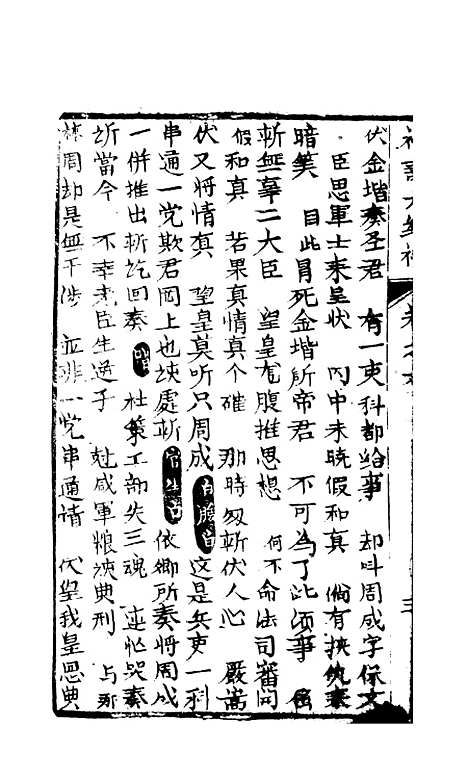 伏金堦奏圣君　有一吏科都給事　却呌周成字保文
臣思軍士来呈状　内中未晓假和真　倘有挾仇来
暗笑　因此冒死金堦所帝君　不可為了此须事　屈
斬無辜二大臣　望皇寬腹推思想　何不命法司審問
假和真　若果真情真个確　那時匆斬伏人心　嚴嵩
伏又将情奏　望皇莫听只周成　這是兵吏一科
串通一党欺君罔上也該處斬　依卿所奏将周成
一併推出斬訖回奏　杜策工部失三魂　連忙哭奏
訴當今　不幸老臣生逆子　尅减軍粮該典刑　与那
周却是無干涉　並非一党串通請　伏皇我皇恩典